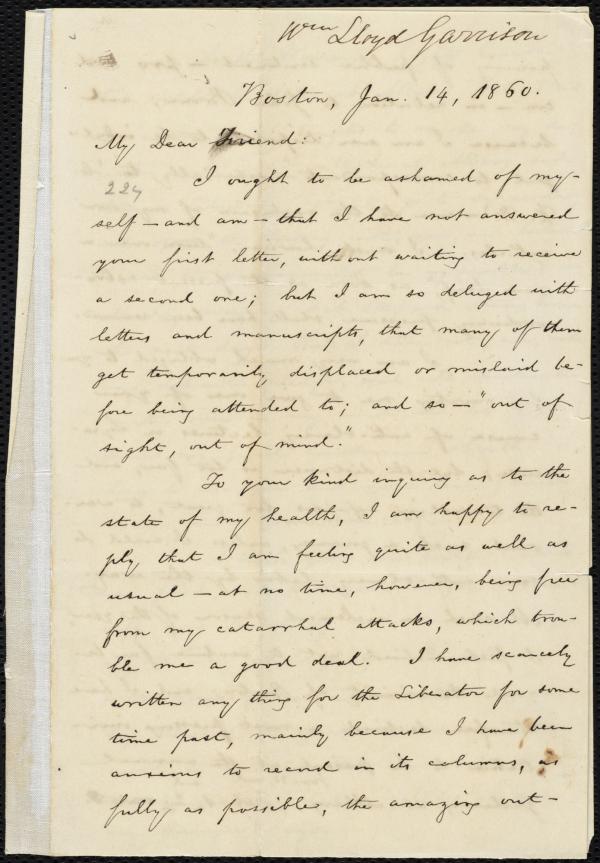 Wm Lloyd Garrison
Boston, Jan. 14, 1860.
My Dear Friend:
224
I ought to be ashamed of my-
self — and am — that I have not answered
your first letter, without waiting to receive
a second one; but I am so deluged with
letters and manuscripts, that many of them
get temporarily displaced or mislaid be-
fore being attended to; and so — "out of
sight, out of mind."
To your kind inquiry as to the
state of my health, I am happy to re-
ply that I am feeling quite as well as
usual — at no time, however, being free
from my catarrhal attacks, which trou-
ble me a good deal. I have scarcely
written any thing for the Liberator for some
time past, mainly because I have been
anxious to record in its columns, as
fully as possible, the amazing out-